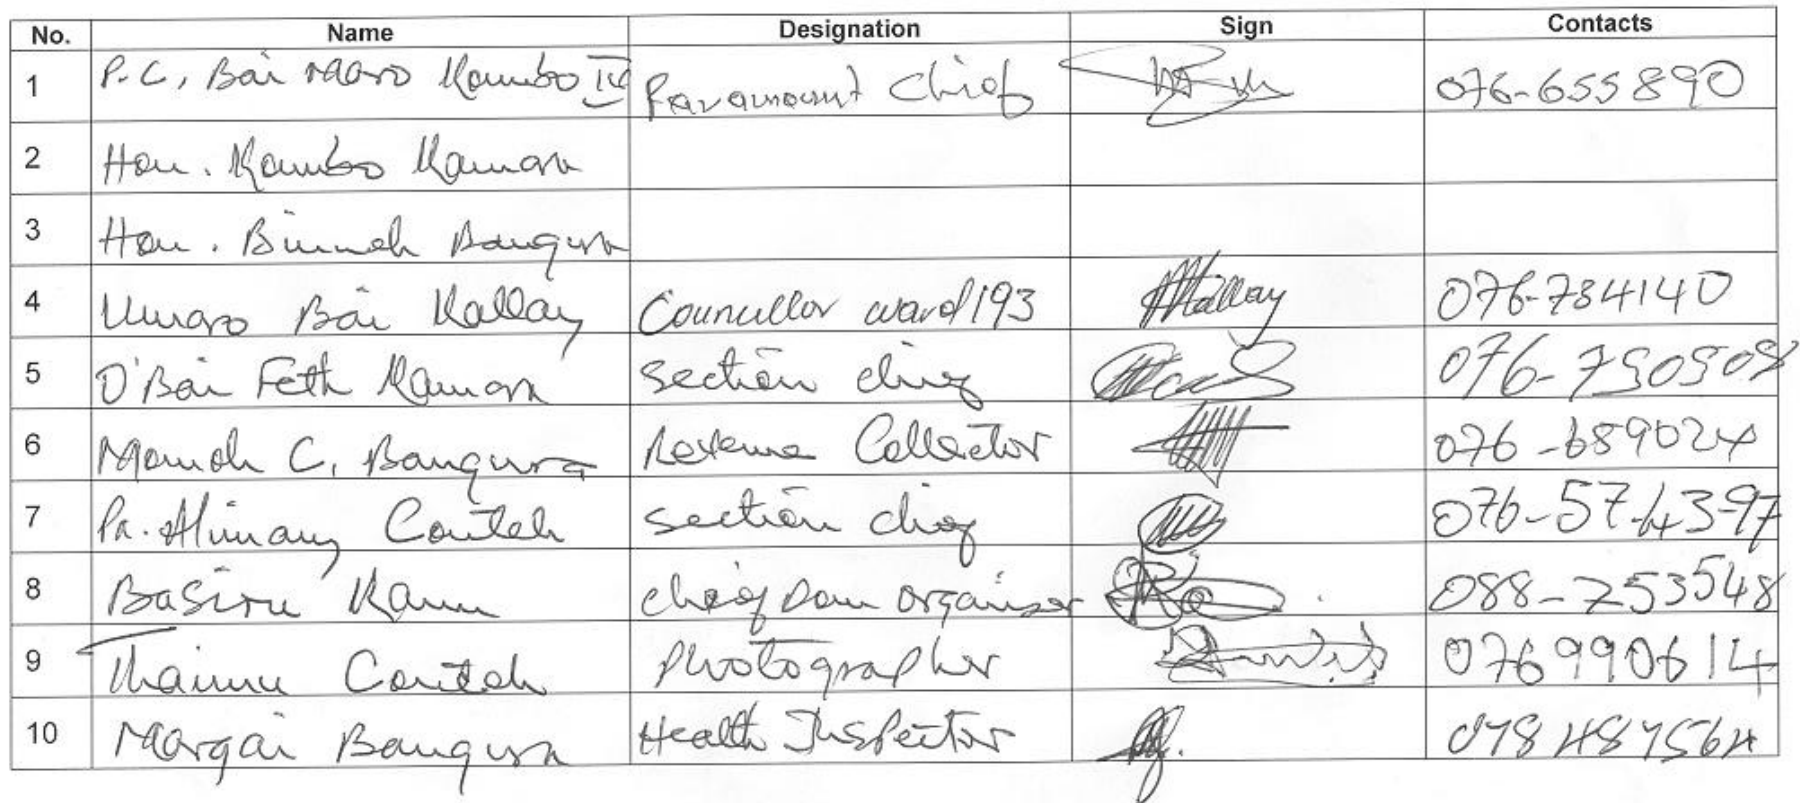 No. Name Designation Sign Contacts
1 P.C, Bai Maro Kambo IV Paramount Chief 076-655890
2 Hon. Kambo Kamara
3 Hon. Binneh Bangura
4 Umaro Bai Kallay Councullor ward 193 Kallay 076-784140
5 O'Bai Feth Kamara Section chief 076-750508
6 Momoh C. Bangura Revenue Collector 076-689024
7 Pa. Alimamy Conteh Section chief 076-574397
8 Basiru Kanu chiefdom organiser 088-753548
9 Thaimu Conteh Photographer 076990614
10 Margai Bangura Health Inspector 078487564